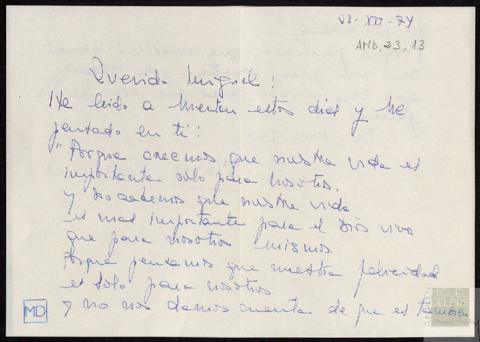 VI-XII-74
AMD, 23, 13
Querido Miguel:
He leido a Merton estos dias y he
pensado en ti:
"Porque creemos que nuestra vida es
importante solo para nosotros.
y no sabemos que nuestra vida
es mas importante para el Dios vivo
que para nosotros mismos.
Porque pensamos que nuestra felicidad
es solo para nosotros
y no nos damos cuenta de que es tambien
MD
MIGUEL